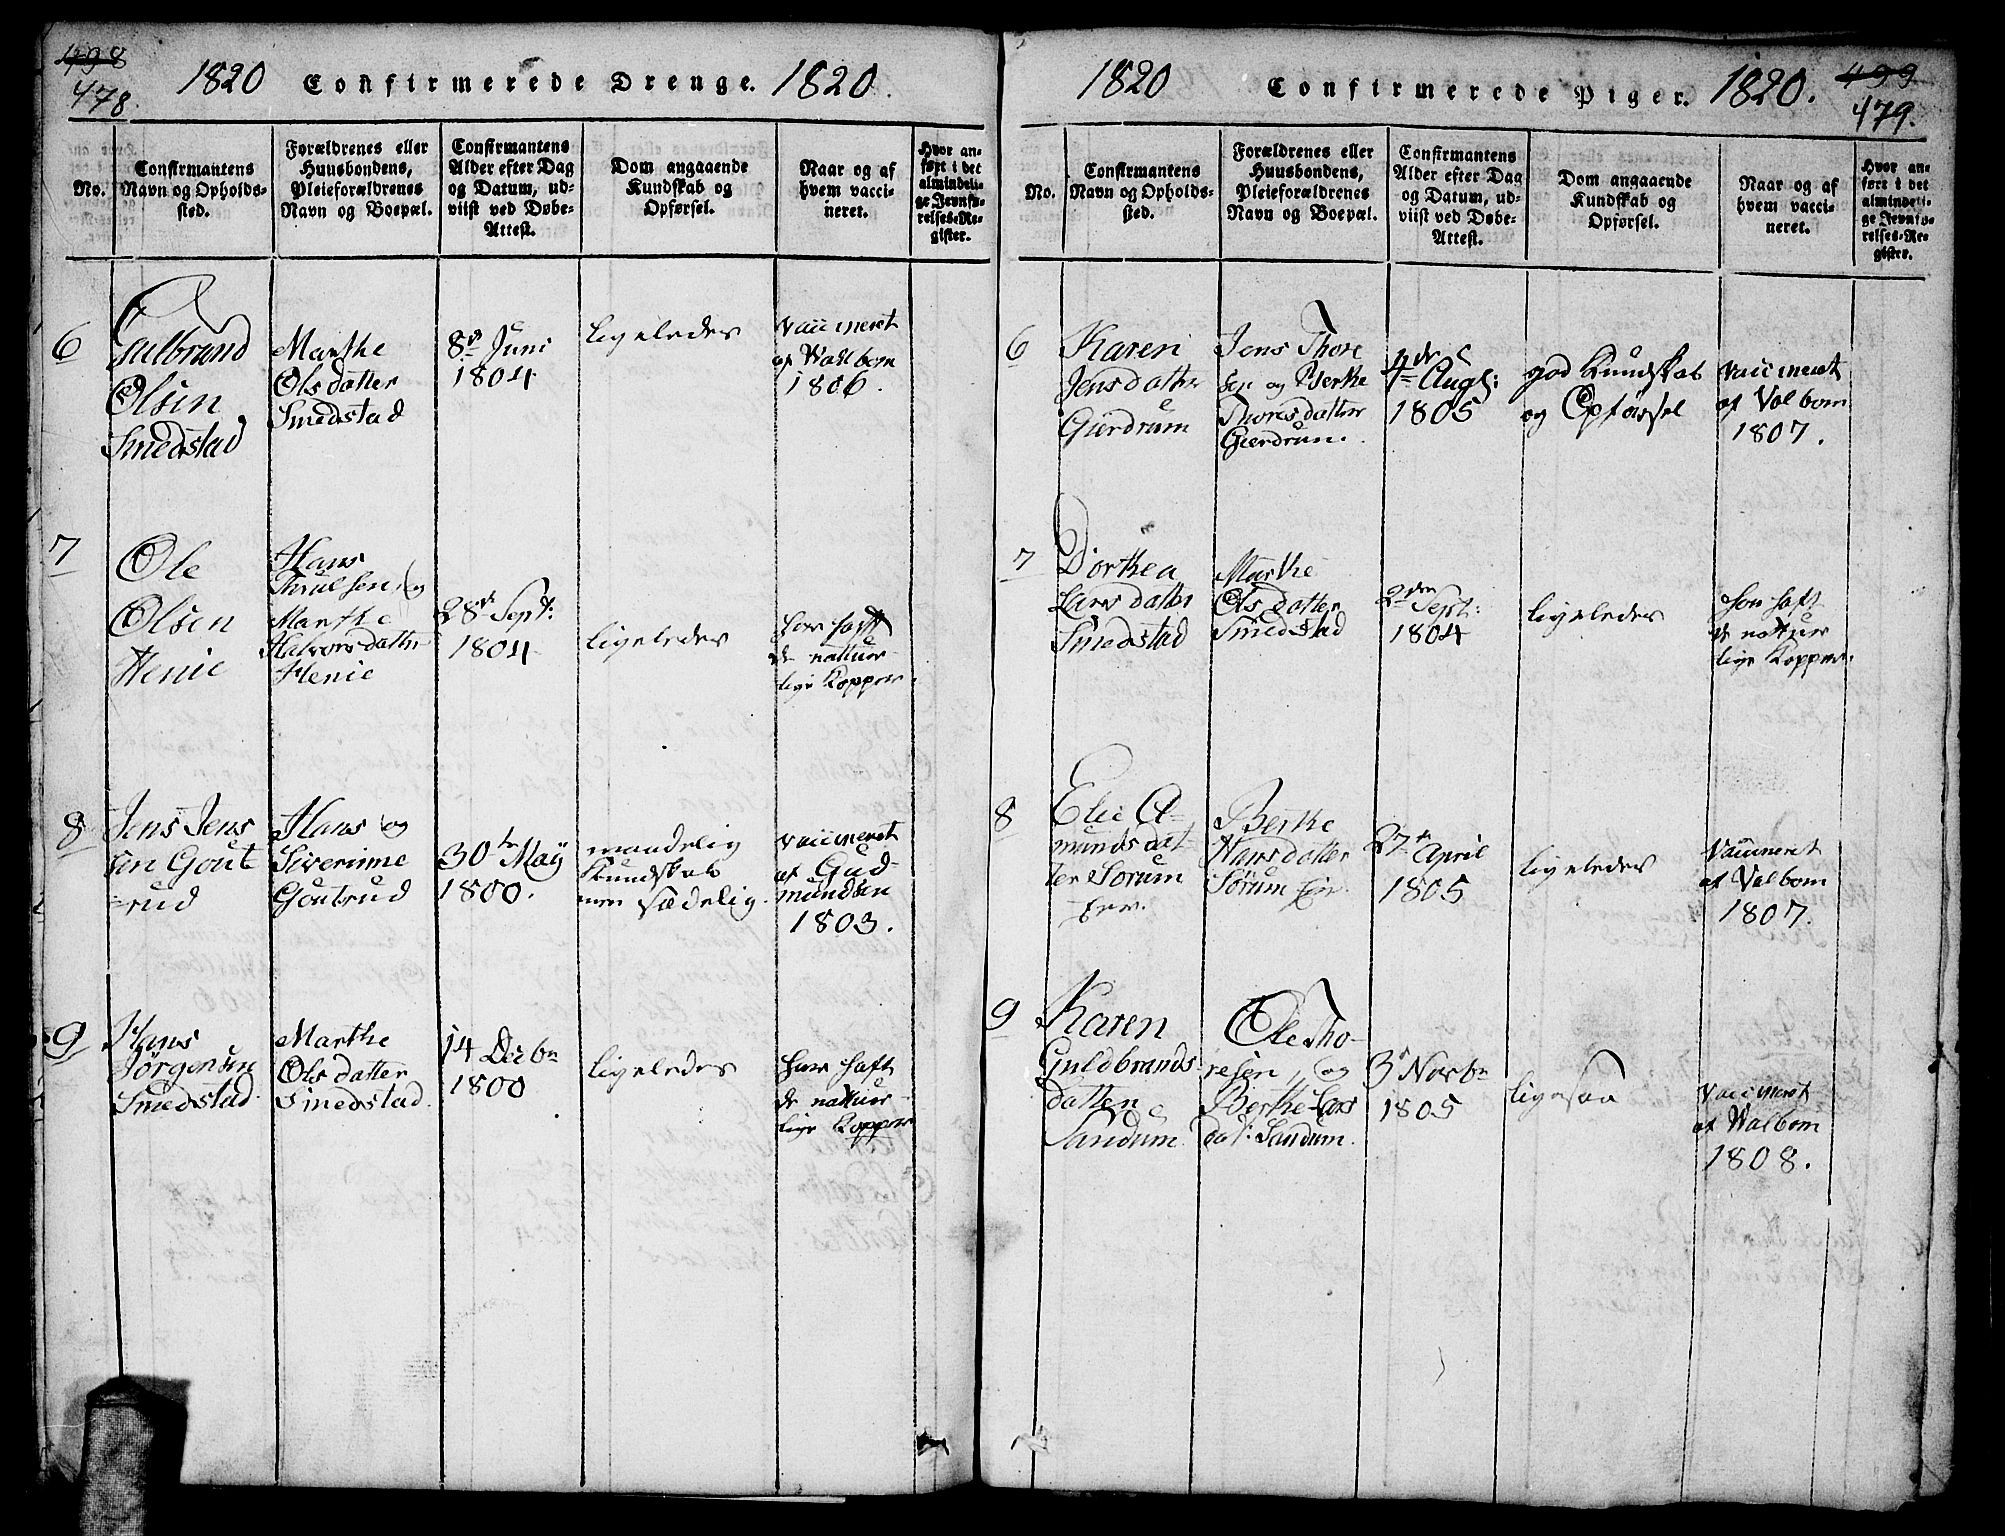 498
478.
1820 Confirmerede Drenge. 1820.
No.
Confirmantens
Navn og Opholds-
sted.
Forældrenes eller
Huusbondens,
Pleieforældrenes
Navn og Boepæl.
Confirmantens
Alder efter Dag
og Datum, ud-
viist ved Døbe-
Attest.
Dom angaaende
Kundskab og
Opførsel.
Naar og af
hvem vacci-
neret.
Hvor an-
ført i det
almindeli-
ge Jevnfø-
relses-Re-
gister.
6
Gulbrand
Olsen
Smedstad
Marthe
Olsdatter
Smedstad
8de Juni
1804
ligeledes
vaccineret
af Walbom
1806.
7
Ole
Olsen
Henie
Hans
Thrulsen og
Marthe
Halvorsdatter
Henie
28de Sept:
1804
ligeledes
har haft
de nattuer-
lige Kopper.
8
Jens Jens
sen Gout
=rud
Hans og
Siverinne
Goutrud
30te Maÿ
1800.
maadelig
Kundskab
men sædelig.
vaccineret
af Gud-
mundsen
1803.
9
Hans
Jörgensen
Smedstad
Marthe
Olsdatter
Smedstad.
14 Decbr
1800
ligeledes
har haft
de nattuer-
lige Kopper
1820 Confirmerede Piger. 1820.
499
479.
No.
Confirmantens
Navn og Opholds-
sted.
Forældrenes eller
Huusbondens,
Pleieforældrenes
Navn og Boepæl.
Confirmantens
Alder efter Dag
og Datum, ud-
viist ved Døbe-
Attest.
Dom angaaende
Kundskab og
Opførsel.
Naar og af
hvem vacci-
neret.
Hvor an-
ført i det
almindeli-
ge Jevnfø-
relses-Re-
gister.
6
Karen
Jensdatter
Gierdrum
Jens Thore
sen og Berthe
Thoresdatter
Gierdrum.
4de Augt:
1805
god Kundskab
og Opførssel
vaccineret
af Valbom
1807.
7
Dorthea
Larsdatter
Smedstad
Marthe
Olsdatter
Smedstad
2den Sept:
1804
ligeledes
har haft
de nattuer
lige Kopper.
8
Elie A-
mundsdat-
ter Sorum
Berthe
Hansdatter
Sörum
27de April
1805
ligeledes
Vaccineret
af Valbom
1807.
9
Karen
Guldbrands-
datter
Sandum.
Ole Tho-
resen, og
Berthe Lars
dat: Sandum.
3de Novbr
1805
ligesaa
vaccineret
af Walbom
1808.